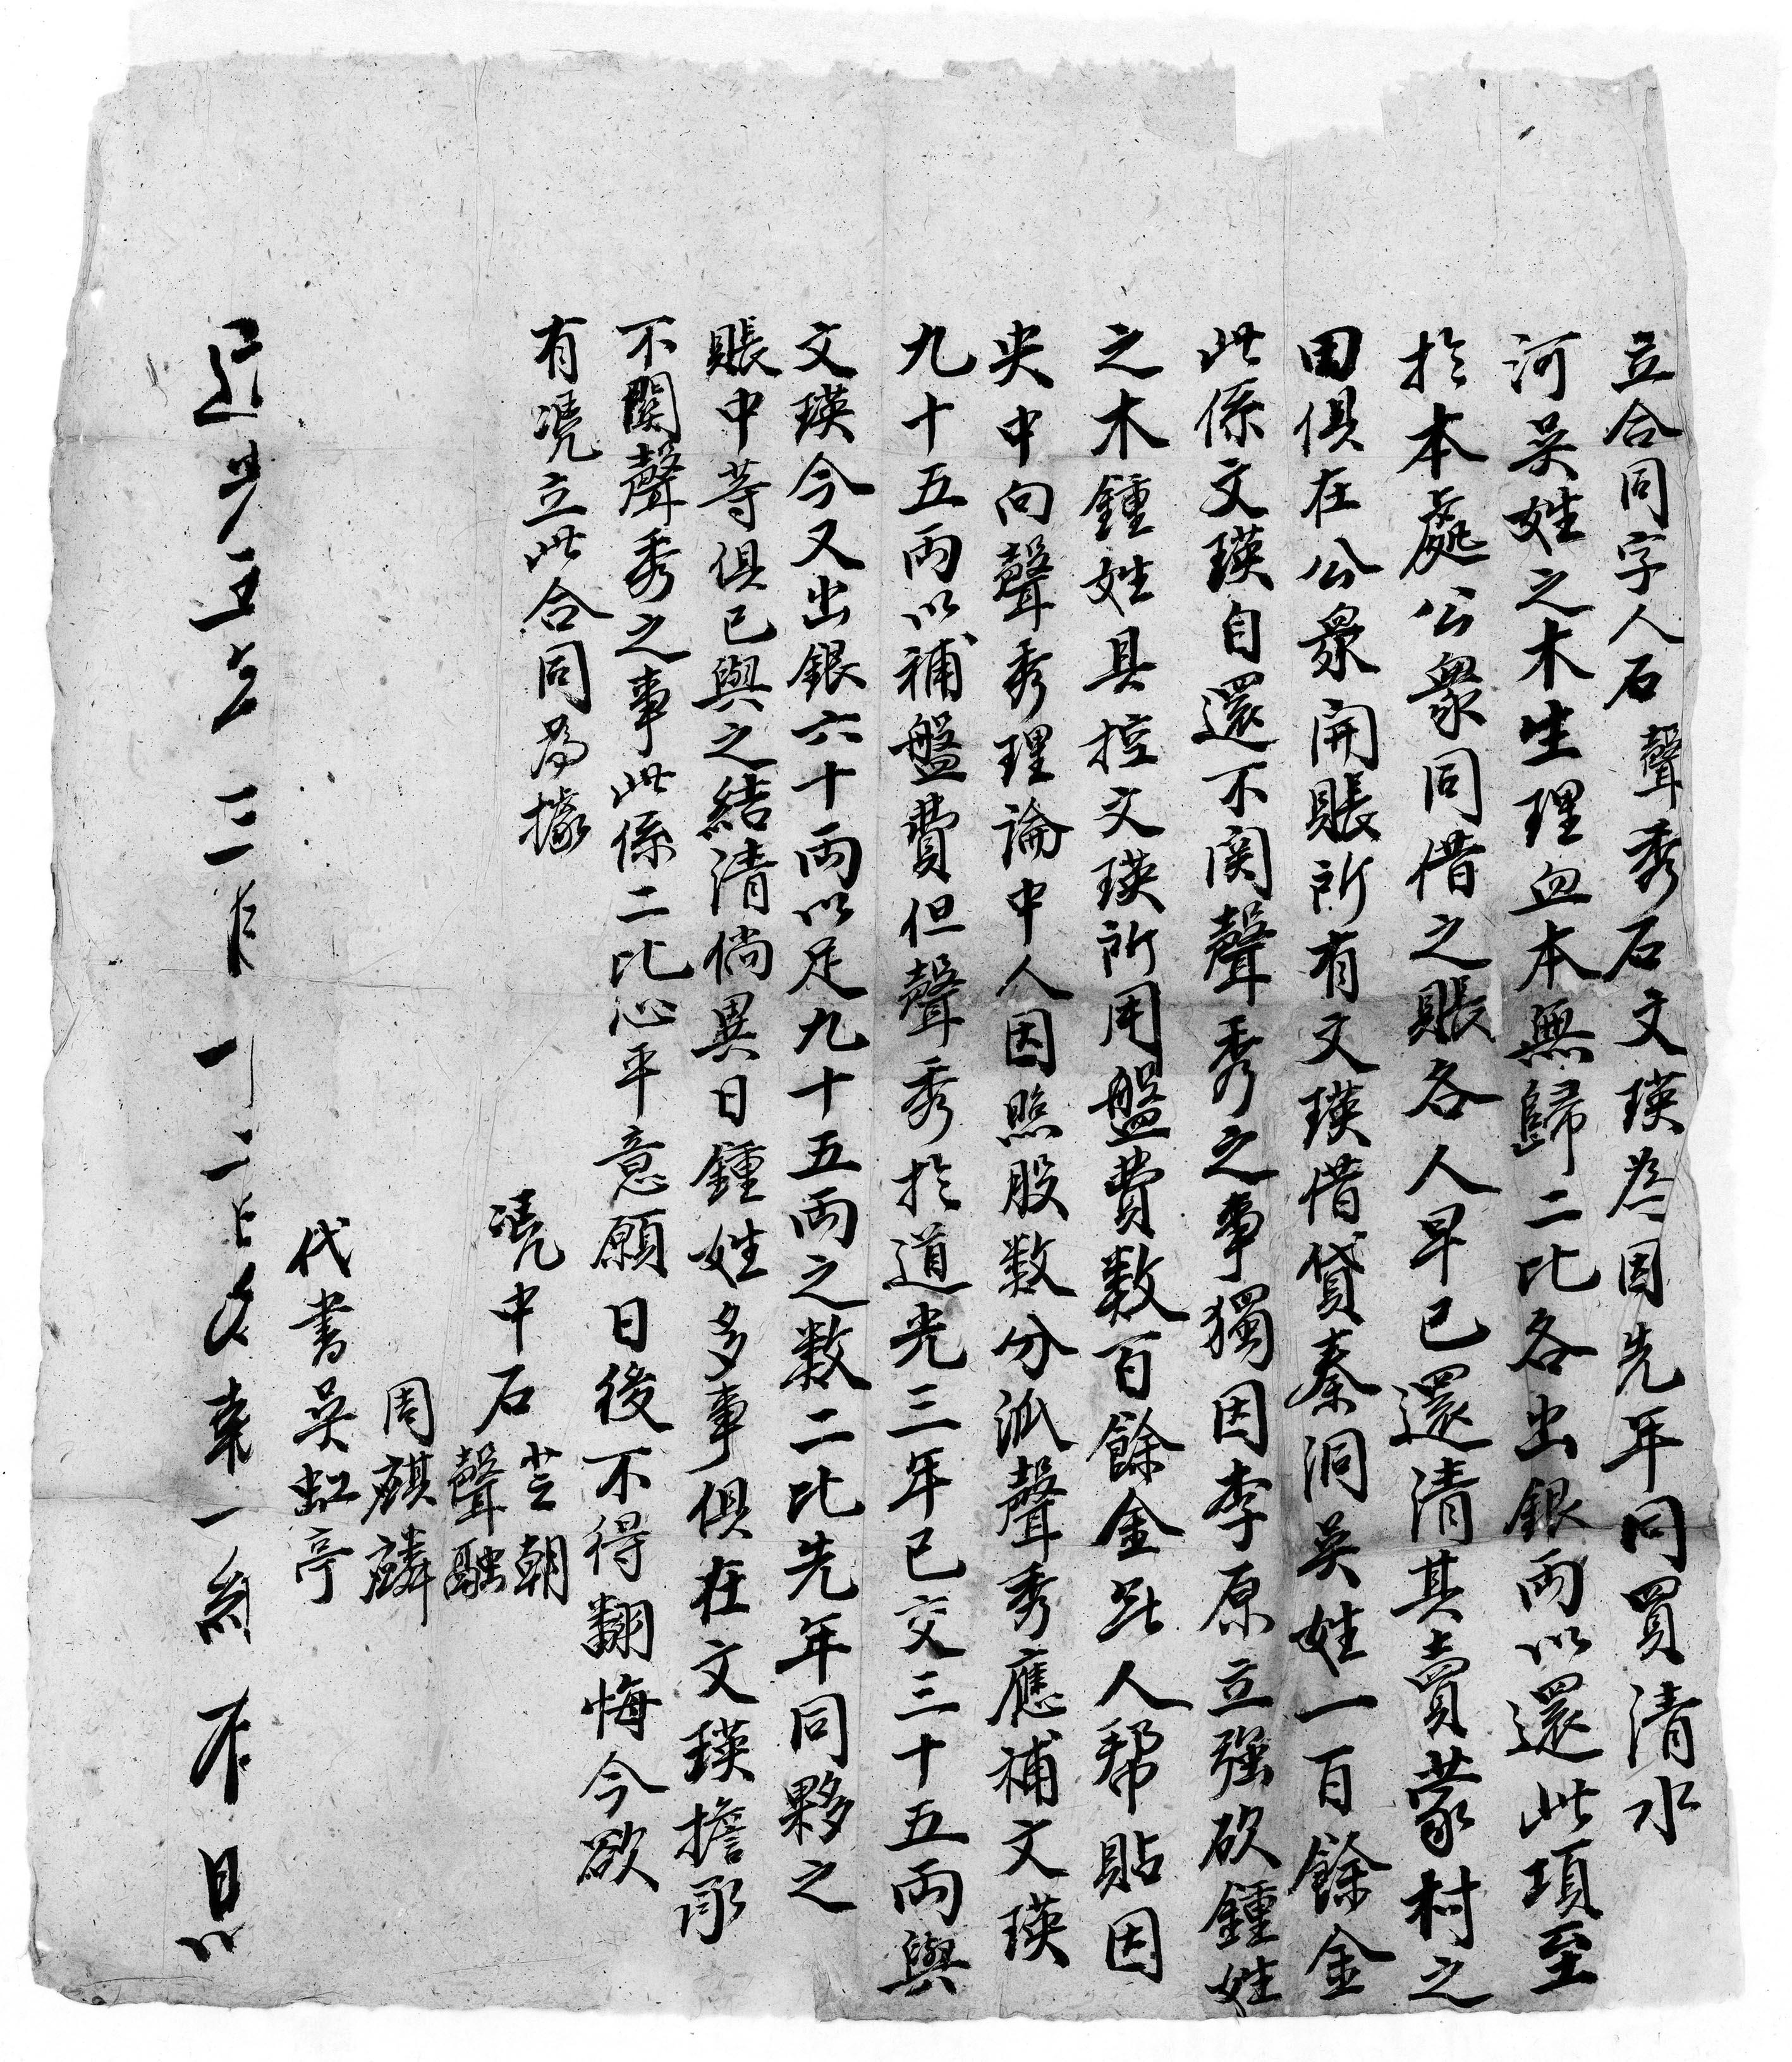 立合同字人石聲秀石文瑛為因先年同買清水
河吳姓之木生理血本無歸二比各出銀兩以還此項至
於本處公衆同借之賬各人早已還清其賣蒙村之
田俱在公衆開賬所有文瑛借貸秦洞吳姓一百餘金
此係文瑛自還不関聲秀之事獨因李原立强砍鍾姓
之木鍾姓具控文瑛所用盤費数百餘金無人帮貼因
央中向聲秀理論中人因照股数分派聲秀應補文瑛
九十五兩以補盤費但聲秀於道光三年已交三十五兩與
文瑛今又出銀六十兩以足九十五兩之数二比先年同夥之
賬中等俱已與之結清倘異日鍾姓多事俱在文瑛擔承
不関聲秀之事此係二比心平意願日後不得翻悔今欲
有凴立此合同為據
凴中石芝朝
聲融
周麒麟
代書吳虹亭